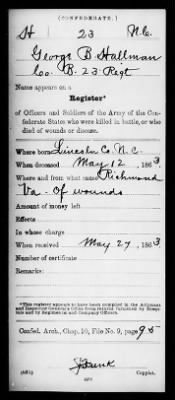 (CONFEDERATE.)
H 23 N.C.
George B Hallman
Co. B. 23 Regt
Name appears on a
Register*
of Officers and Soldiers of the Army of the Con-
federate States who were killed in battle, or who
died of wounds or disease.
Where born Lincoln Co. N.C.
When deceased May 12, 1863
Where and from what cause Richmond
Va - Of wounds
Amount of money left
Effects
In whose charge
When received May 27, 1863
Number of certificate
Remarks:
*This register appears to have been compiled in the Adjutant
and Inspector General's Office from returns furnished by Hospi-
tals and by Regiment and Company Officers.
Confed. Arch., Chap. 10, File No. 9, page 95
Copyist.